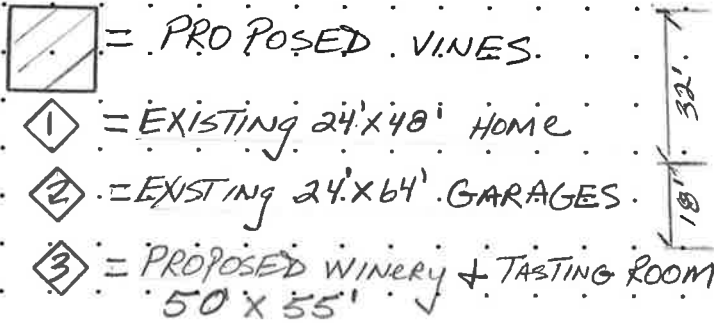 = PROPOSED VINES.
1 = EXISTING 24'X48' HOME
2 = EXISTING 24'X64' GARAGES
3 = PROPOSED WINERY + TASTING ROOM
50' X 55'
32'
18'